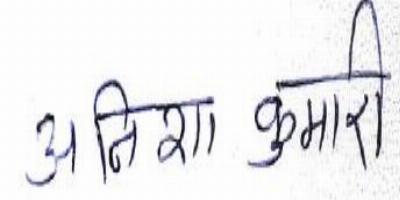 अनिशा कुमारी